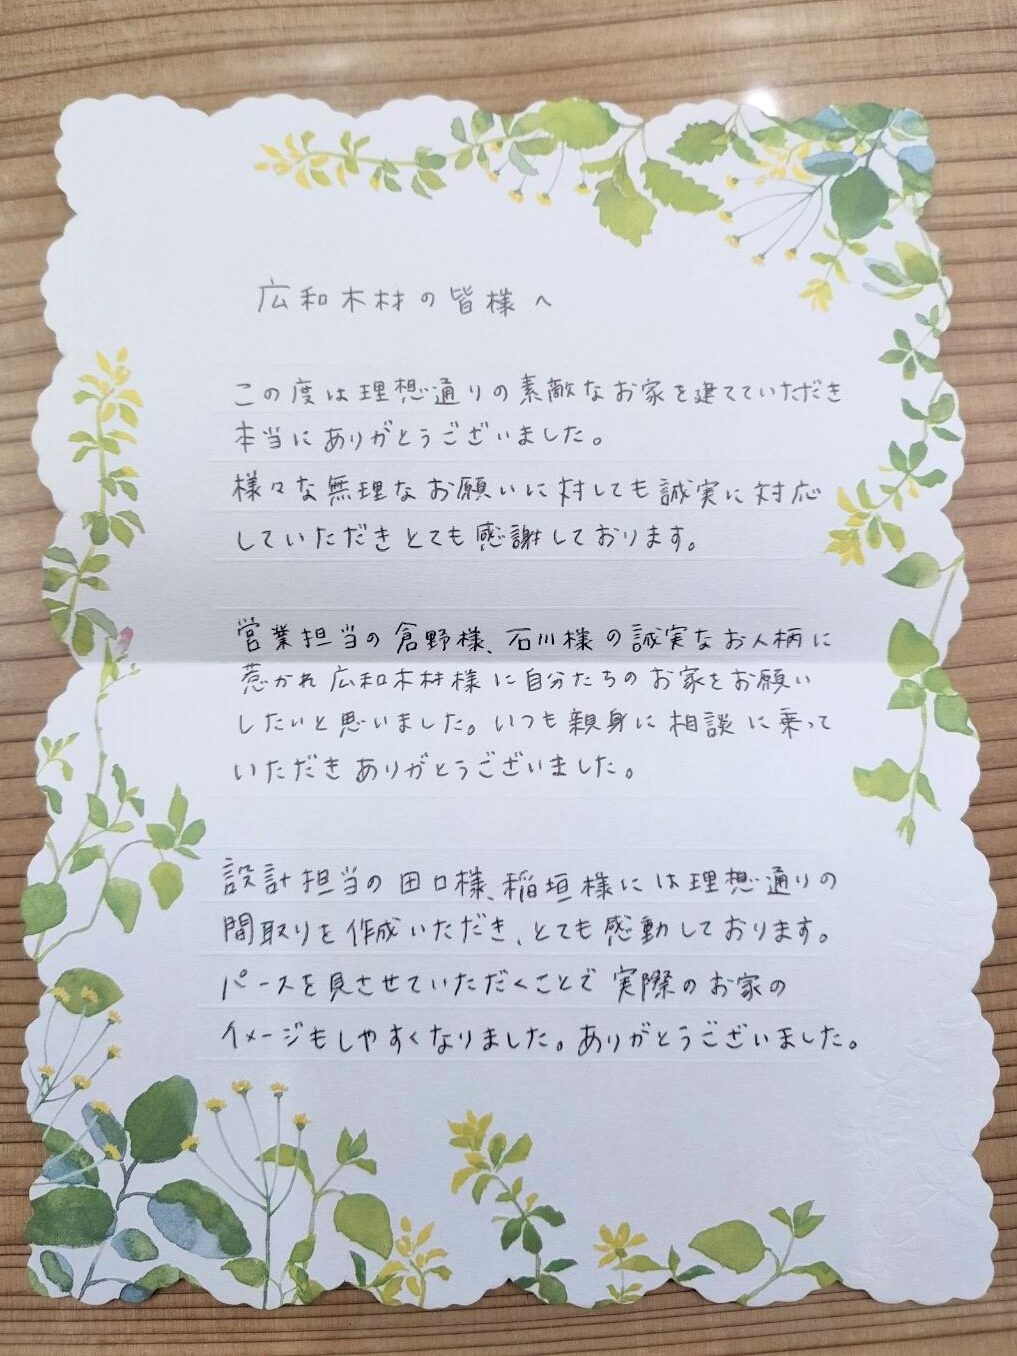 広和木材の皆様へ
この度は理想通りの素敵なお家を建てていただき
本当にありがとうございました。
様々な無理なお願いに対しても誠実に対応
していただきとても感謝しております。
営業担当の倉野様、石川様の誠実なお人柄に
惹かれ広和木材様に自分たちのお家をお願い
したいと思いました。いつも親身に相談に乗って
いただきありがとうございました。
設計担当の田口様、稲垣様には理想通りの
間取りを作成いただき、とても感動しております。
パースを見させていただくことで実際のお家の
イメージもしやすくなりました。ありがとうございました。